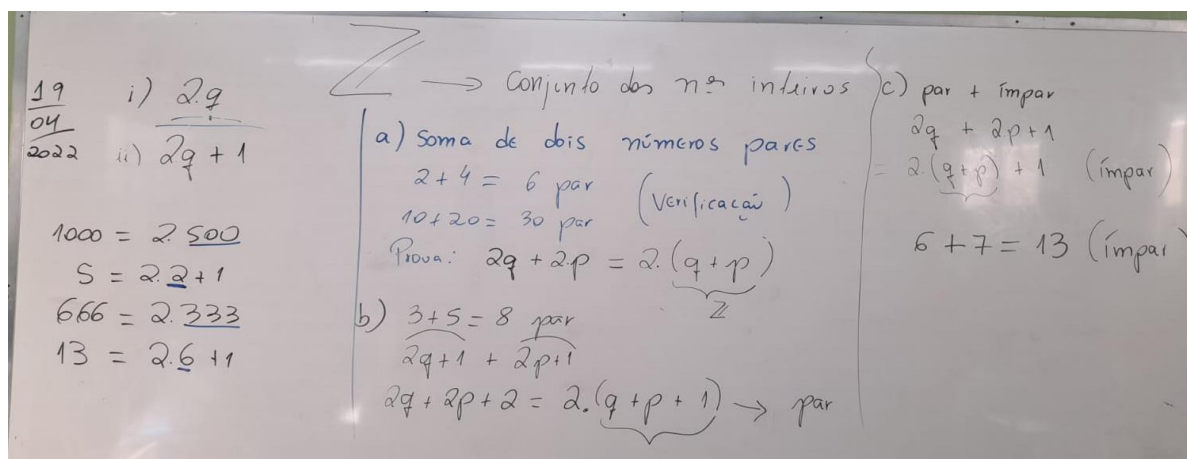 19
04
2022
i) 2.q
ii) 2q + 1
1000 = 2.500
5 = 2.2+1
666 = 2.333
13 = 2.6 +1
Z → Conjunto dos nos inteiros
a) Soma de dois números pares
2+4 = 6 par (Verificação)
10+20= 30 par
Prova: 2q + 2.p = 2.(q+p)
Z
b) 3+5 = 8 par
2q+1 + 2p+1
2q + 2p + 2 = 2.(q+p+1) → par
c) par + ímpar
2q + 2p+1
= 2.(q+p) + 1 (ímpar)
6 + 7 = 13 (ímpar)